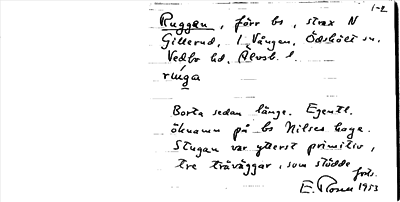 1-2
Ruggan, förr bs, strax N
Gillerud, i Vången, Ödskölt sn,
Vedbo hd, Älvsb. l.
ruga
Borta sedan länge. Egentl.
öknamn på bs Nilses hage.
Stugan var ytterst primitiv,
tre träväggar, som stödde
forts.
E. Rosen 1953